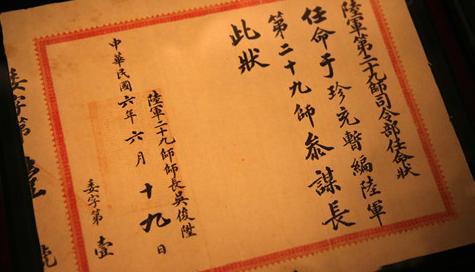 陸軍第二十九師司令部任命狀
任命于珍充暫編陸軍
第二十九師參謀長
此狀
陸軍二十九師師長吳俊陞
中華民國六年六月十九日
委字第壹
委字第壹號